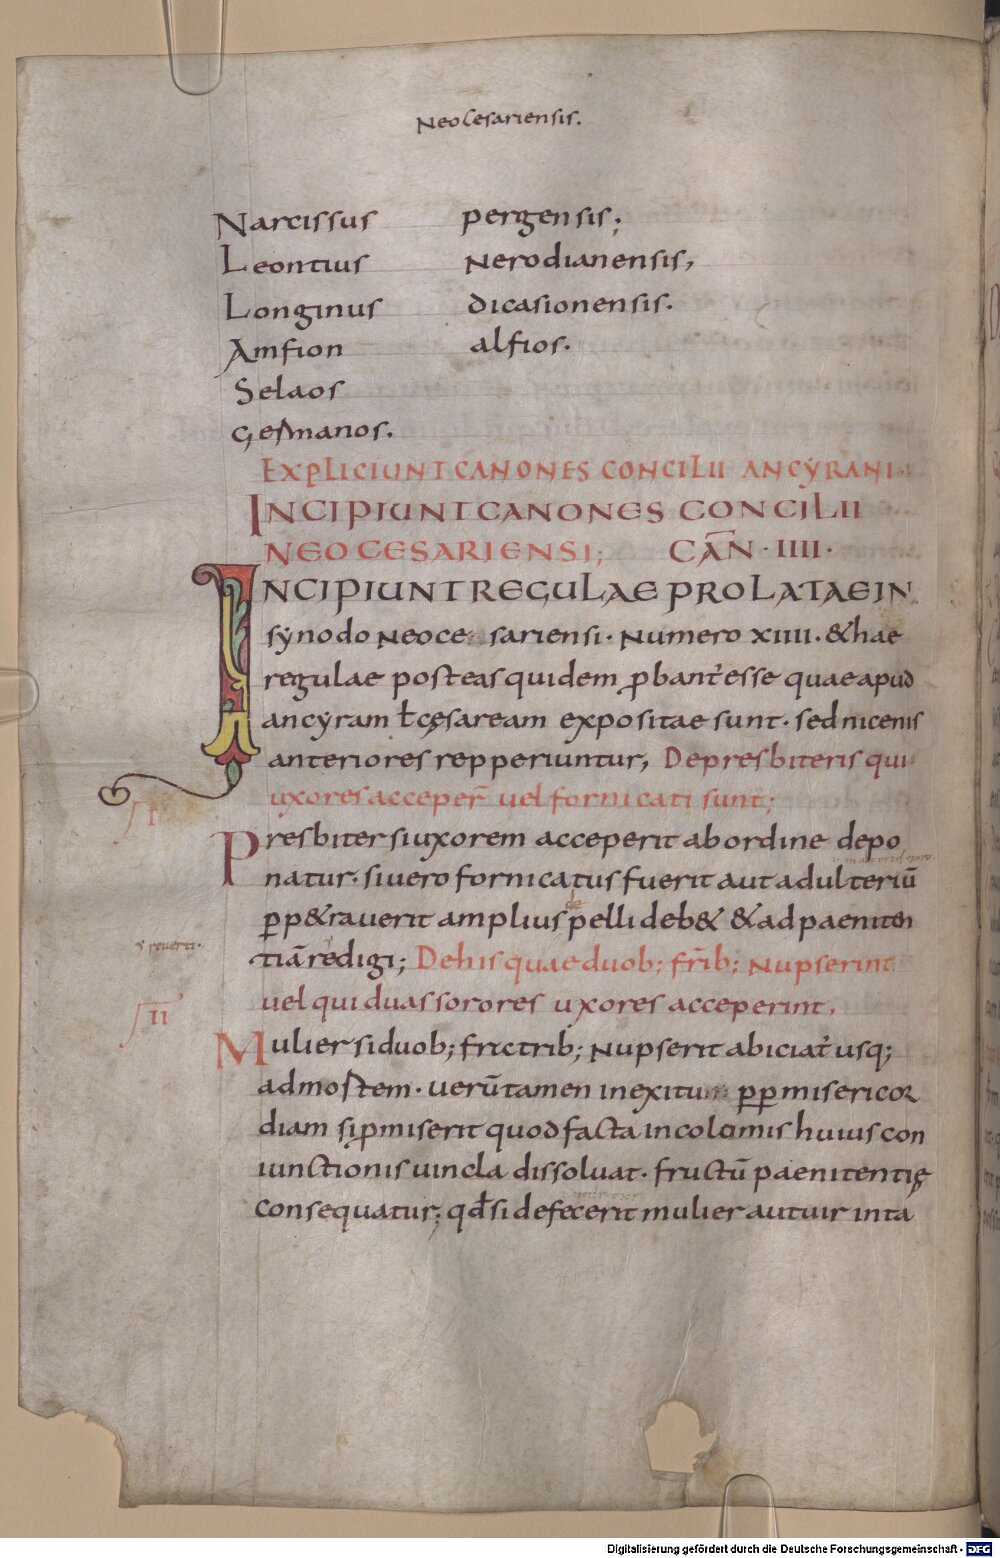 Neocesariensis.
Narcissus pergensis;
Leontius Nerodianensis,
Longinus dicasionensis.
Amfion alfios.
Selaos
Germanos.
EXPLICIUNT CANONES CONCILII ANCYRANI.
INCIPIUNT CANONES CONCILII
NEOCESARIENSI; CAN̄ · IIII ·
INCIPIUNT REGULAE PROLATAE IN
sẏnodo Neoce sariensi · Numero xiiii · & hae
regulae posteas quidem ꝓbant̉ esse quae apud
ancẏram ł cęsaream expositae sunt · sed nicenis
anteriores repperiuntur, De presbiteris qui
uxores acceper̄ uel fornicati sunt;
I
Presbiter si uxorem acceperit ab ordine depo
natur · si uero fornicatus fuerit aut adulteriū
ꝑp&rauerit amplius pelli deb& & ad paeniten
de
reverti ·
tiā redigi; De his quae duob; fr̄ib; Nupserint
uel qui duas sorores uxores acceperint.
II
Mulier si duob; frictrib; Nupserit abiciat̉ usq;
ad mortem · uerūtamen in exitum ꝓꝑ misericor
diam si ꝓmiserit quod facta incolomis huius con
iunctionis uincla dissoluat · fructū paenitentię
consequatur; qđ si defecerit mulier aut uir in ta
Digitalisierung gefördert durch die Deutsche Forschungsgemeinschaft · DFG